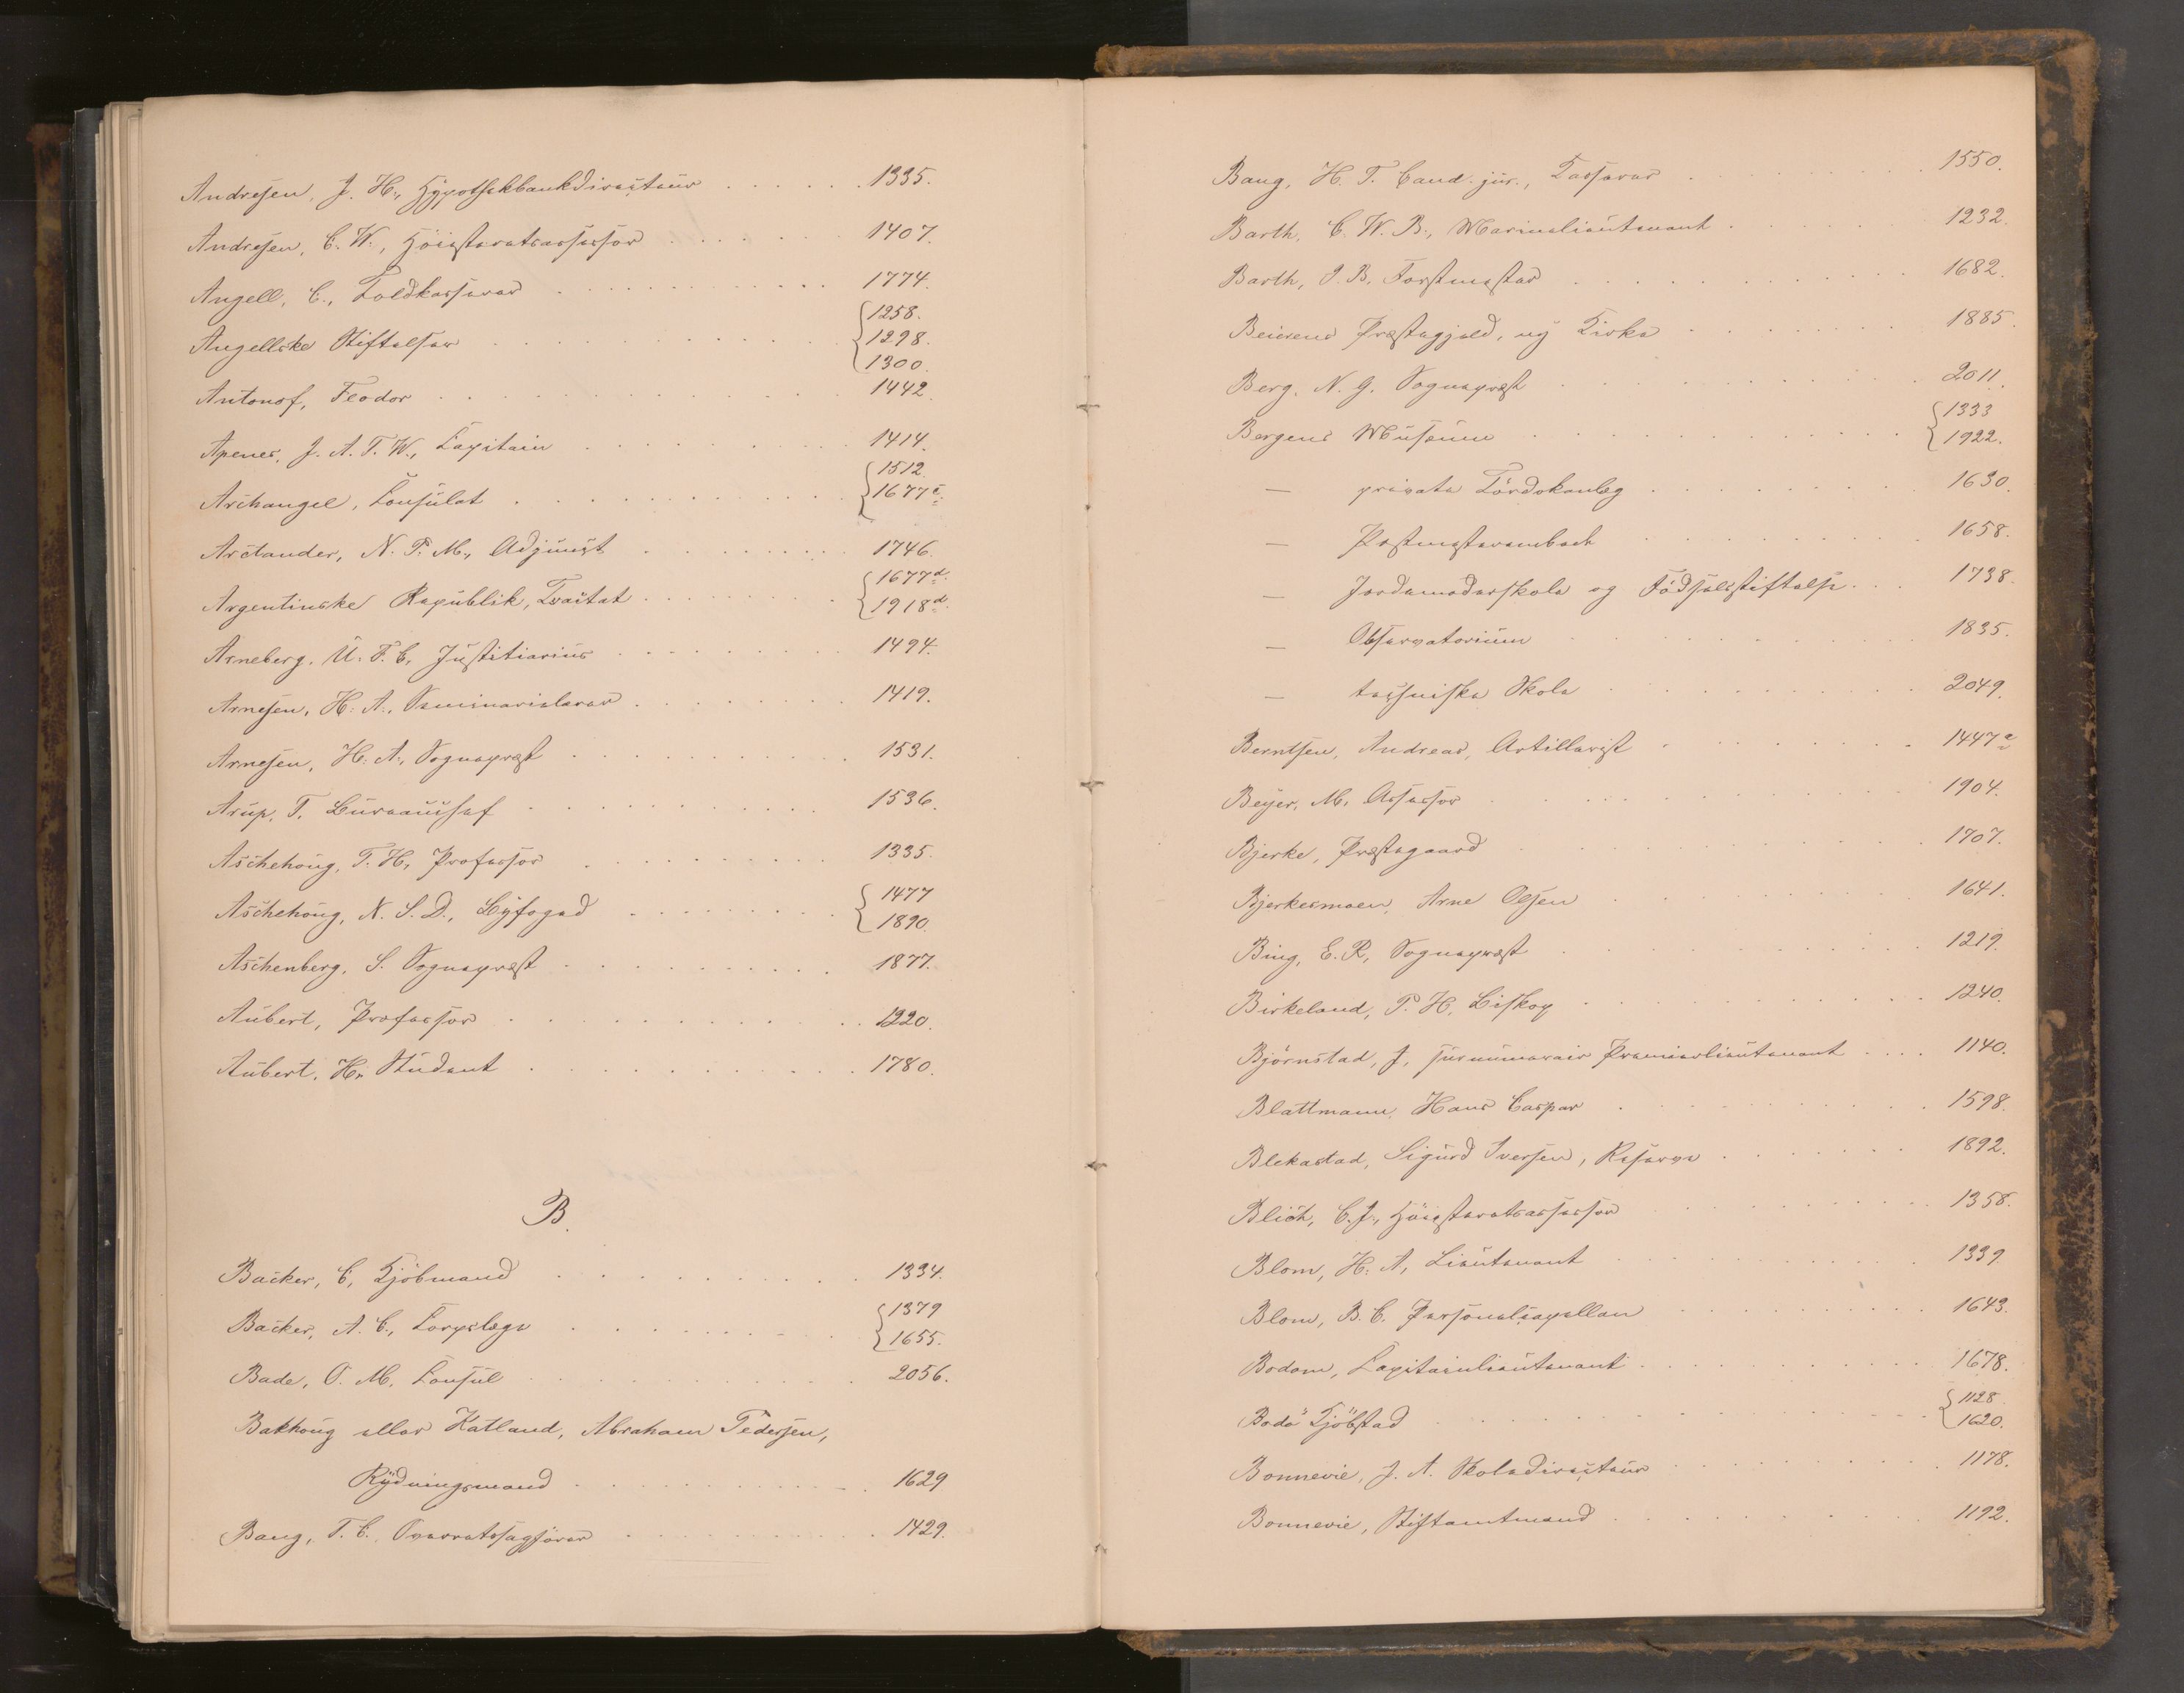 Andresen, J. H., Hypothekbankdirecteur . . . . . 1335.
Andresen, C. W., Höiesteretsassessor . . . . . 1407.
Angell, C., Toldkasserer . . . . . 1774.
Angellske Stiftelser . . . . . { 1258.
1298.
1300.
Antonof, Feodor . . . . . 1442.
Apenes, J. A. T. W., Capitain . . . . . 1414.
Archangel, Consulat . . . . . { 1512
1677 c.
Arctander, N. P. M., Adjunct . . . . . 1746.
Argentinske Republik, Tractat . . . . . { 1677 d.
1918 d.
Arneberg, U. F. C., Justitiarius . . . . . 1494.
Arnesen, H. A., Seminarielærer . . . . . 1419.
Arnesen, H. A., Sognepræst . . . . . 1531.
Arup, T. Bureauchef . . . . . 1536.
Aschehoug, T. H., Professor . . . . . 1335.
Aschehoug, N. S. D., Byfoged . . . . . { 1477
1890.
Aschenberg, S. Sognepræst . . . . . 1877.
Aubert, Professor . . . . . 1220.
Aubert, H., Student . . . . . 1780.
B.
Backer, C, Kjöbmand . . . . . 1334.
Backer, A. C., Corpslæge . . . . . { 1379
1655.
Bade, O. M. Consul . . . . . 2056.
Bakhoug eller Hatland, Abraham Pedersen,
Rydningsmand . . . . . 1629
Bang, T. C. Overretssagförer . . . . . 1429.
Bang, H. T. Cand. jur., Kasserer . . . . . 1550.
Barth, C. W. B., Marinelieutenant . . . . . 1232.
Barth, J. B. Forstmester . . . . . 1682.
Beierens Præstegjeld, ny Kirke . . . . . 1885.
Berg, N. G. Sognepræst . . . . . 2011.
Bergens Museum . . . . . { 1333
1922.
— private Tördokanlæg . . . . . 1630.
— Postmesterembede . . . . . 1658.
— Jordemoderskole og Födselsstiftelse . . . 1738.
— Observatorium . . . . . 1835.
— techniske Skole . . . . . 2049.
Berntsen, Andreas, Artillerist . . . . . 1447 a
Beyer, M. Assessor . . . . . 1904.
Bjerke, Præstegaard . . . . . 1707.
Bjerkesmoen, Arne Olsen . . . . . 1641.
Bing, E. R, Sognepræst . . . . . 1219.
Birkeland, P. H, Biskop . . . . . 1240.
Björnstad, J, surnumerair Premierlieutenant . . . . 1140.
Blattmann, Hans Caspar . . . . . 1598.
Blekastad, Sigurd Iversen, Reserve . . . . . 1892.
Blich, C. J., Höiesteretsassessor . . . . . 1358.
Blom, H. A, Lieutenant . . . . . 1339
Blom, B. C. Personelcapellan . . . . . 1643.
Bodom, Capitainlieutenant . . . . . 1678.
Bodö Kjöbstad . . . . . { 1128
1620.
Bonnevie, J. A. Skoledirecteur . . . . . 1178.
Bonnevie, Stiftamtmand . . . . . 1192.